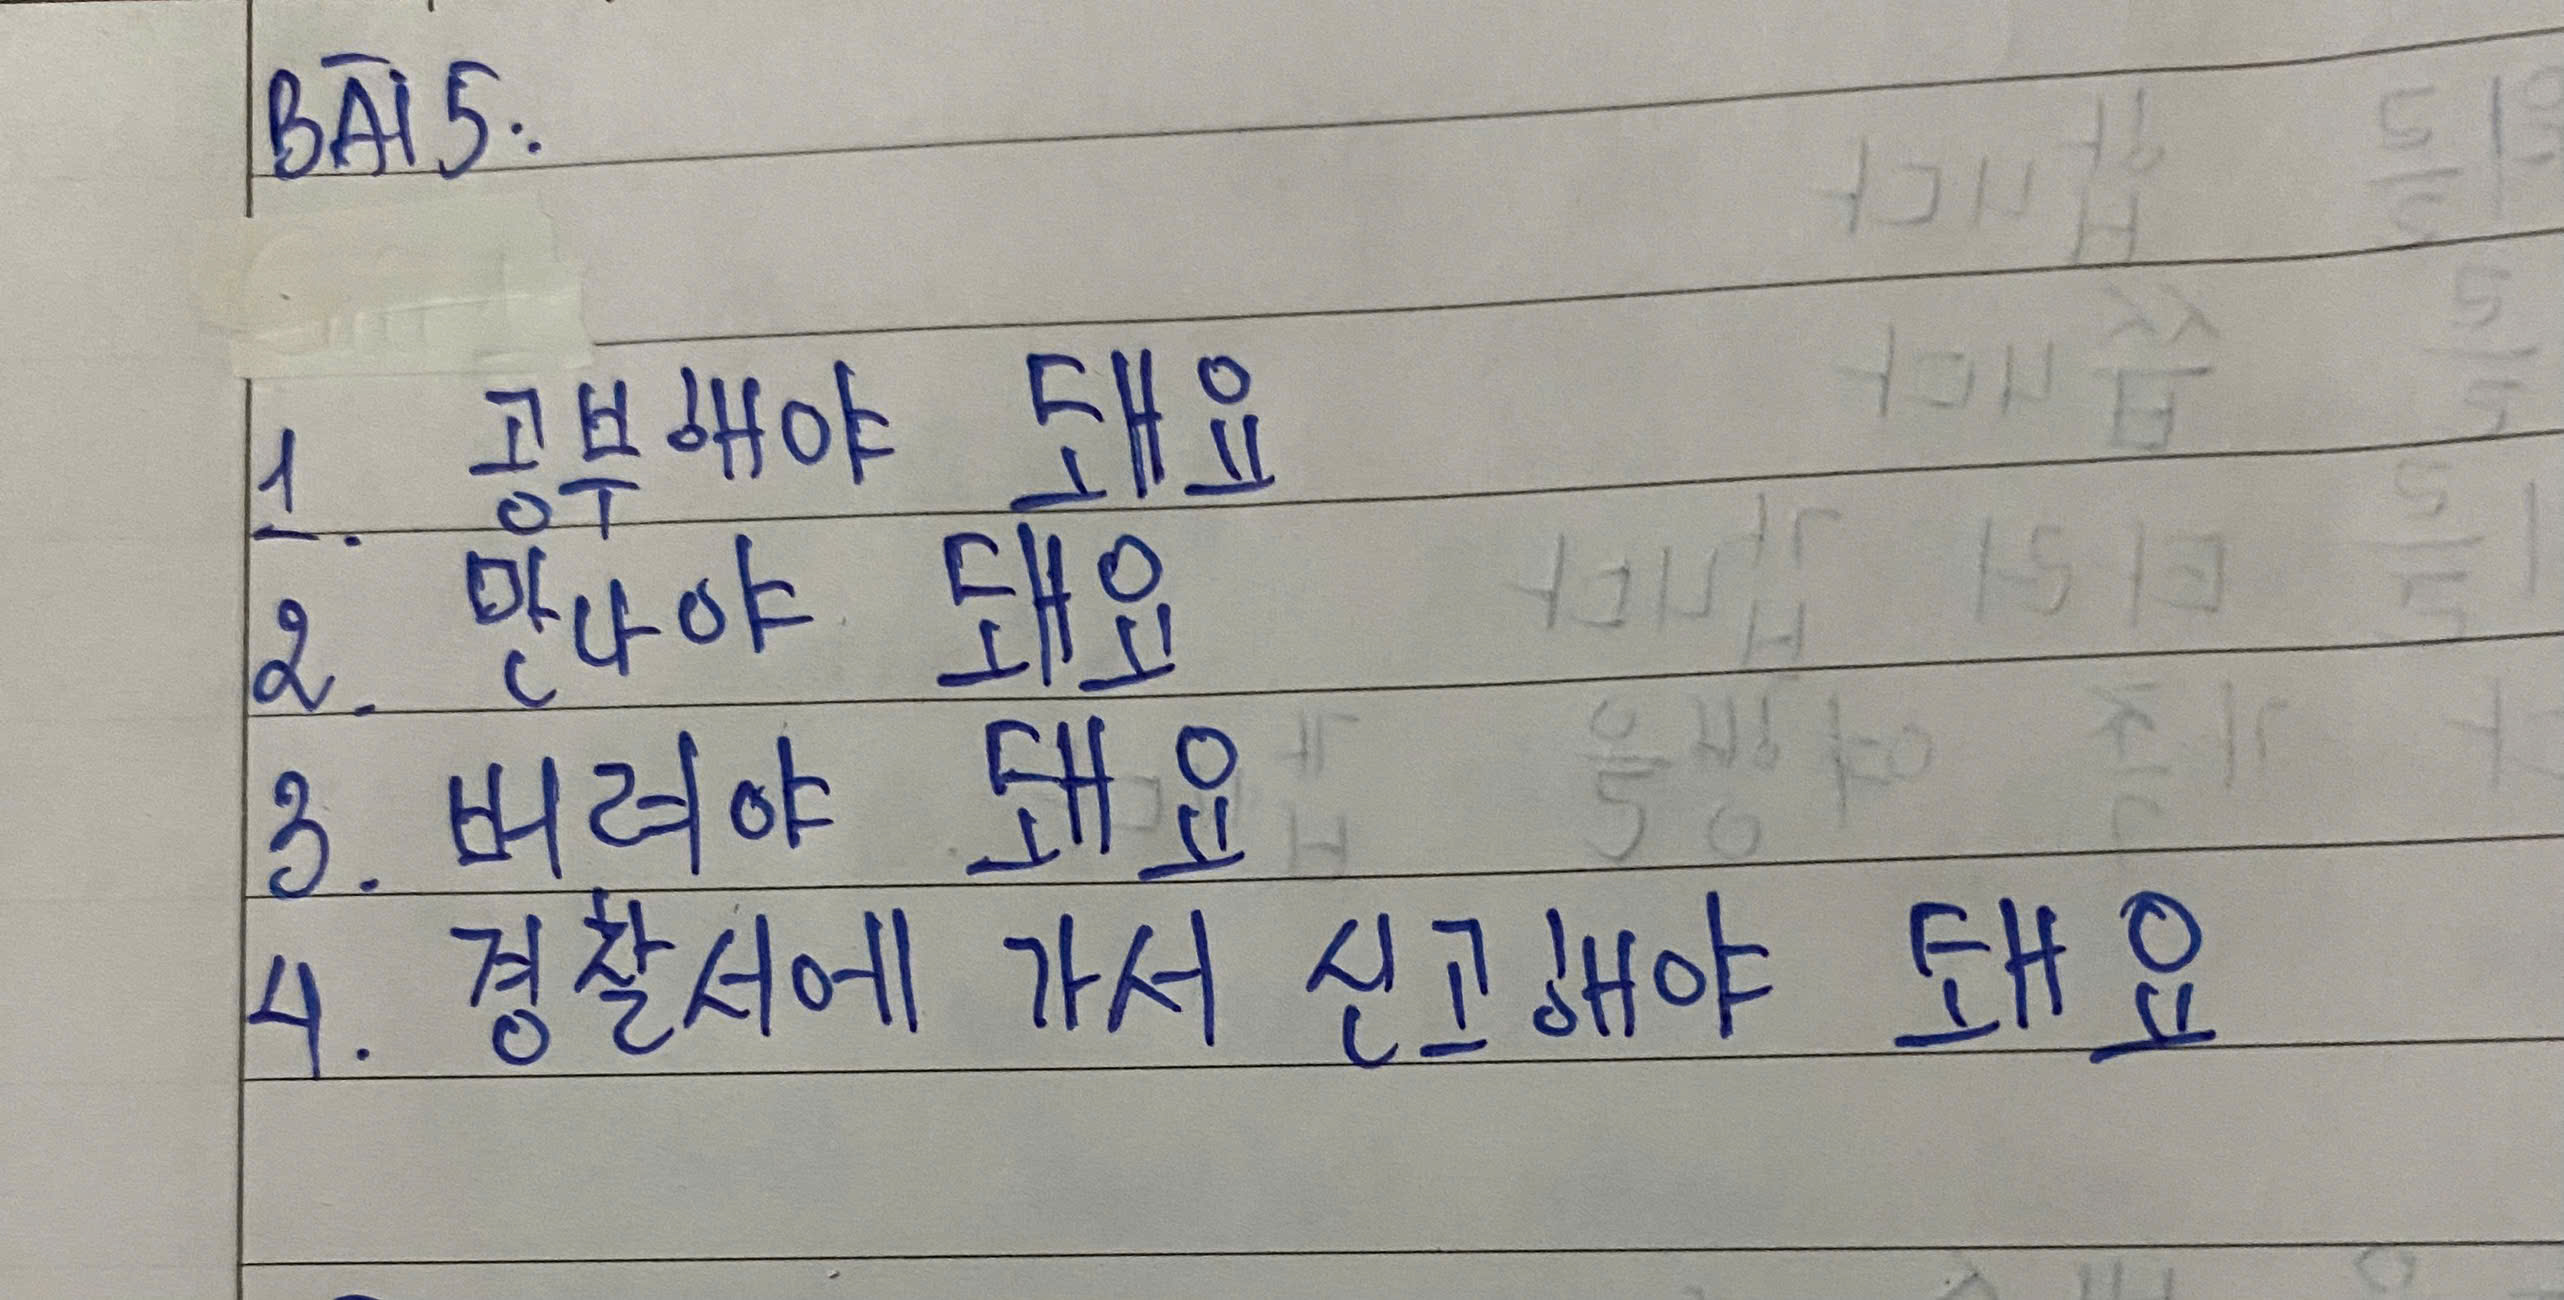 BÀI 5:
1. 공부해야 돼요
2. 만나야 돼요
3. 버려야 돼요
4. 경찰서에 가서 신고해야 돼요